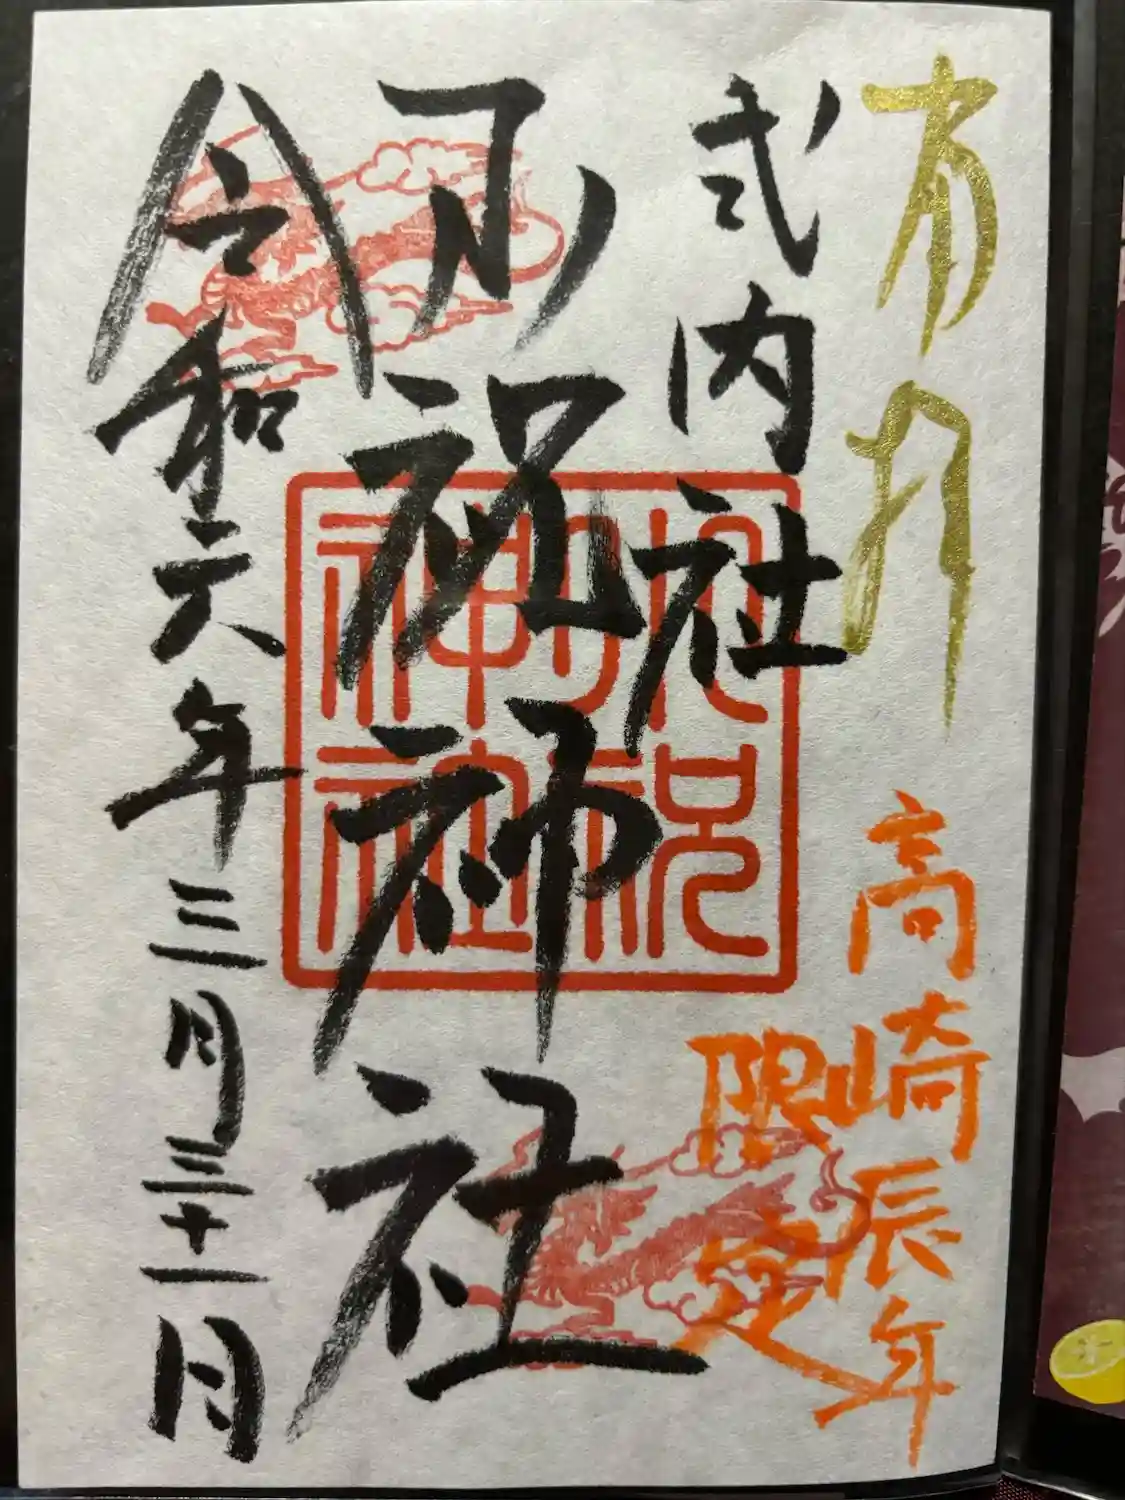 奉拝
高崎辰年
限定
式内社
小祝神社
令和六年三月三十一日
小祝
神社